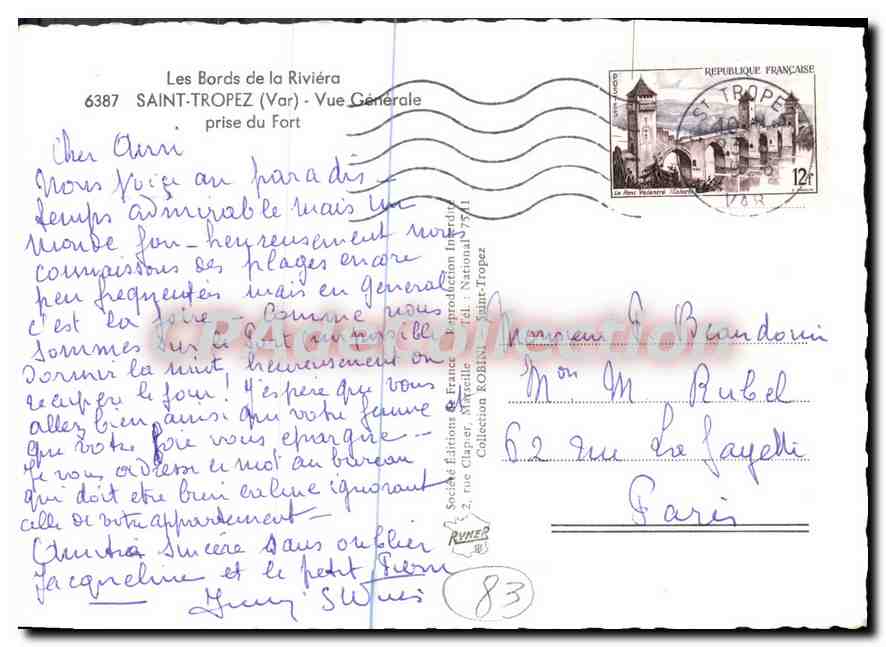 Les Bords de la Riviéra
6387 SAINT-TROPEZ (Var) - Vue Générale
prise du Fort
Cher Ami
Nous voici au paradis -
temps admirable mais un
monde fou - heureusement nous
connaissons des plages encore
peu frequentés mais en General
c'est la foire - Comme nous
sommes sur le port impossible
dormir la nuit, heureusement on
recupère le jour ! J'espère que vous
allez bien ainsi que votre femme et
que votre foie vous epargne -
Je vous adresse ce mot au bureau
qui doit etre bien calme ignorant
celle de votre appartement -
Amitié Sincère sans oublier
Jacqueline et le petit Pierre
POSTES
REPUBLIQUE FRANÇAISE
Le Pont Valentré (Cahors)
12f
ST TROPEZ
VAR
Société Éditions de France - Reproduction Interdite
2, rue Clapier, Marseille - Tél. : National 75-11
Collection ROBINI - Saint-Tropez
RYNER
CPA de collection
Monsieur F Beaudouin
Mon M. Rubel
62 rue La Fayette
Paris
83